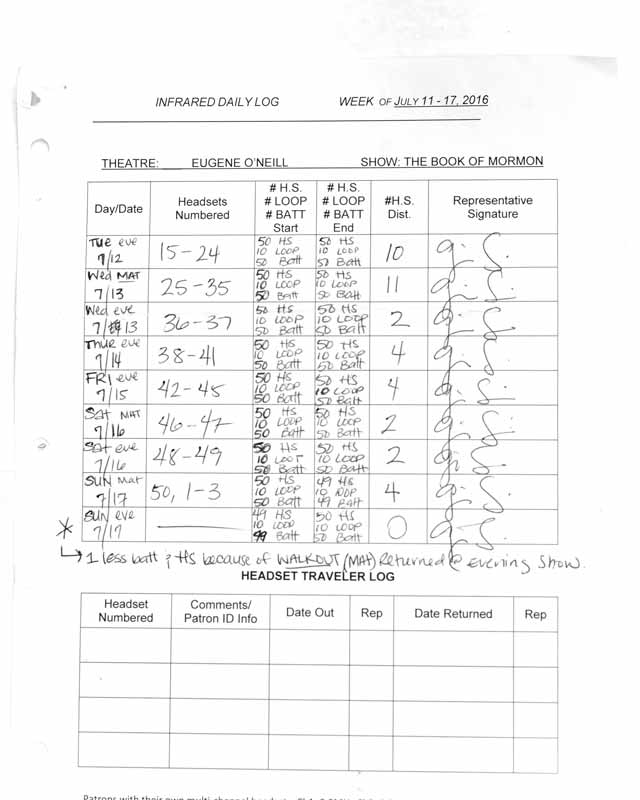 INFRARED DAILY LOG WEEK OF JULY 11 - 17, 2016
THEATRE: EUGENE O'NEILL SHOW: THE BOOK OF MORMON
Day/Date Headsets Numbered # H.S. # LOOP # BATT Start # H.S. # LOOP # BATT End #H.S. Dist. Representative Signature
TUE eve 7/12 15-24 50 HS 10 LOOP 50 Batt 50 HS 10 LOOP 50 Batt 10
Wed MAT 7/13 25-35 50 HS 10 LOOP 50 Batt 50 HS 10 LOOP 50 Batt 11
Wed eve 7/13 36-37 50 HS 10 LOOP 50 Batt 50 HS 10 LOOP 50 Batt 2
THUR eve 7/14 38-41 50 HS 10 LOOP 50 Batt 50 HS 10 LOOP 50 Batt 4
FRI eve 7/15 42-45 50 HS 10 LOOP 50 Batt 50 HS 10 LOOP 50 Batt 4
Sat MAT 7/16 46-47 50 HS 10 LOOP 50 Batt 50 HS 10 LOOP 50 Batt 2
Sat eve 7/16 48-49 50 HS 10 LOOT 50 Batt 50 HS 10 LOOP 50 Batt 2
SUN Mat 7/17 50, 1-3 50 HS 10 LOOP 50 Batt 49 HS 10 LOOP 49 Batt 4
* SUN eve 7/17 49 HS 10 LOOP 49 Batt 50 HS 10 LOOP 50 Batt 0
↳ 1 less batt & HS because of WALKOUT (MAT) Returned @ evening show.
HEADSET TRAVELER LOG
Headset Numbered Comments/ Patron ID Info Date Out Rep Date Returned Rep